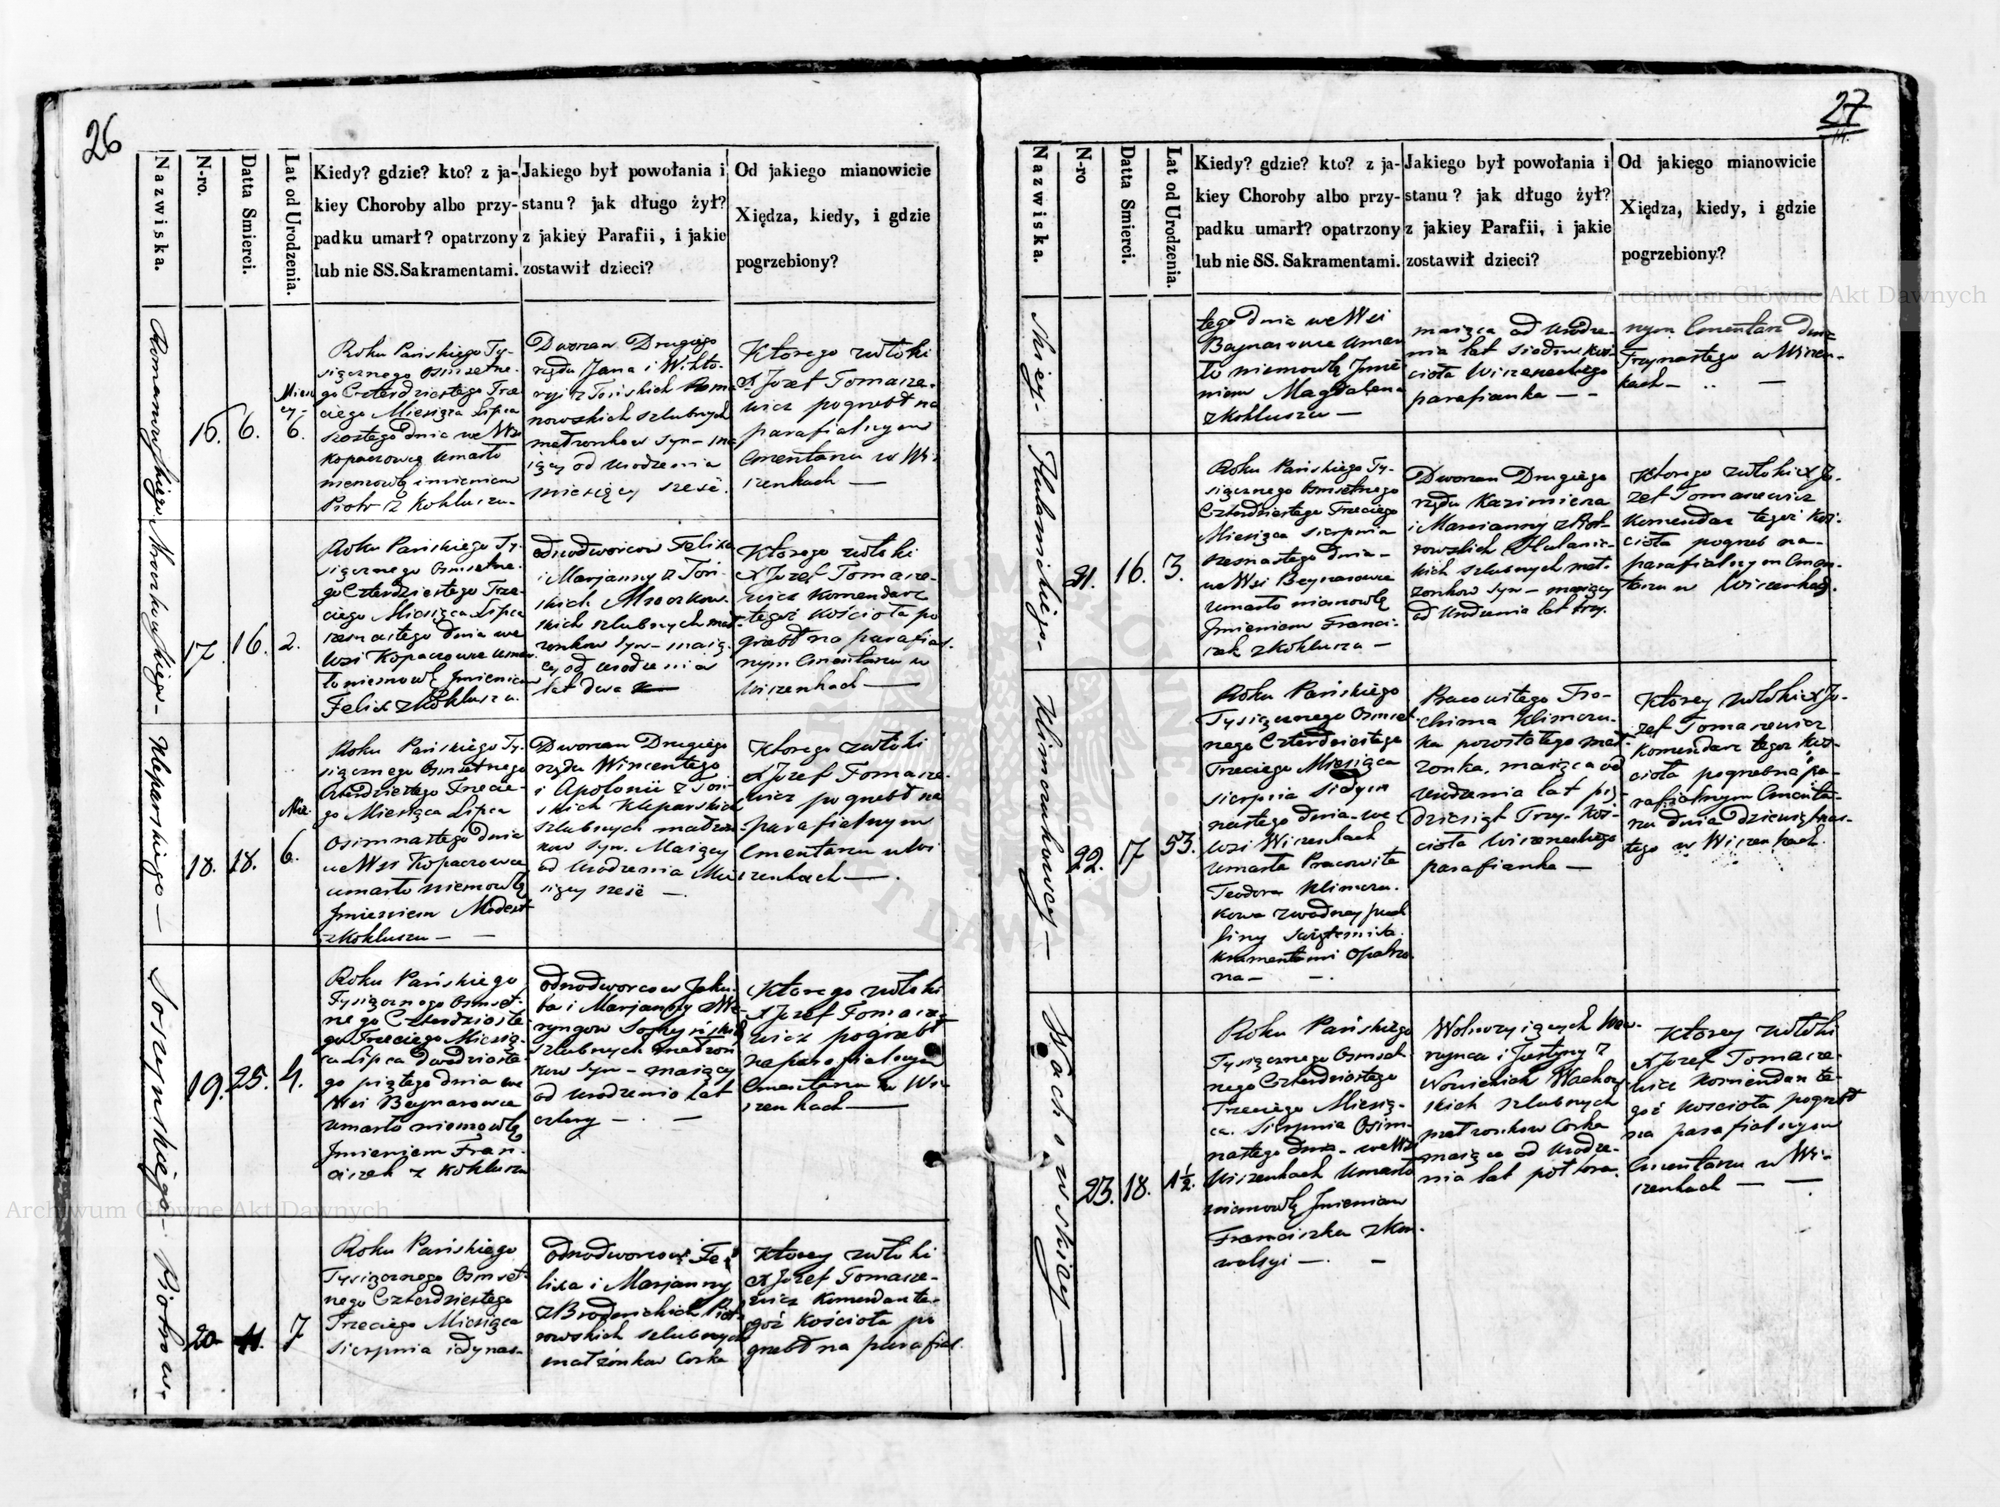 26
Nazwiska.
N-ro.
Datta Smierci.
Lat od Urodzenia.
Kiedy? gdzie? kto? z ja-
kiey Choroby albo przy-
padku umarł? opatrzony
lub nie SS. Sakramentami.
Jakiego był powołania i
stanu? jak długo żył?
z jakiey Parafii, i jakie
zostawił dzieci?
Od jakiego mianowicie
Xiędza, kiedy, i gdzie
pogrzebiony?
Romanowskiego
16.
6.
6.
Roku Pańskiego Ty-
siącznego Osmsetne-
go Czterdziestego Trze
ciego Miesiąca Lipca
szostego dnia we Wsi
Kopaczowce umarło
niemowlę imieniem
Piotr z Kokluszu-
Dworzan Drugiego
rzędu Jana i Wikto-
ryi z Tońskich Roma
nowskich szlubnych
małżonkow syn - ma
iący od urodzenia
miesięcy sześć.
Ktorego zwłoki
X Jozef Tomasze-
wicz pogrzebł na
parafialnym
Cmentarzu w Wi-
szenkach —
Mroczkowskiego -
17.
16.
2.
Roku Pańskiego Ty-
siącznego Osmsetne-
go Czterdziestego Trze-
ciego Miesiąca Lipca
szesnastego dnia we
Wsi Kopaczowce umar
ło niemowlę Jmieniem
Felix z Kokluszu.
odnodworcow Felixa
i Marjanny z Toń-
skich Mroczkow-
skich szlubnych mał
żonkow syn - maią
cy od urodzenia
lat dwa —
Ktorego zwłoki
X Jozef Tomasze-
wicz Komendarz
tegoż Kościoła po
grzebł na parafial-
nym Cmentarzu w
Wiszenkach —
Kleparskiego —
18.
18.
Mie.
6.
Roku Pańskiego Ty-
siącznego Osmsetnego
Czterdziestego Trzecie-
go Miesiąca Lipca
Osimnastego dnia
we Wsi Kopaczowce
umarło niemowlę
Jmieniem Modest
z Kokluszu — —
Dworzan Drugiego
rzędu Wincentego
i Apolonii z Toń-
skich Kleparskich
szlubnych małżon
kow syn. Maiący
od urodzenia Mie
sięcy sześć —.
Ktorego zwłoki
X Jozef Tomasze-
wicz pogrzebł na
parafialnym
Cmentarzu w Wi
szenkach —.
Soszynskiego -
19.
25.
4.
Roku Pańskiego
Tysiącznego Osmset-
nego Czterdzieste
go Trzeciego Miesią-
ca Lipca dwudzieste-
go piątego dnia we
Wsi Bejnarowce
umarło niemowlę
Jmieniem Fran-
ciszek z Kokluszu
odnodworcow Jaku-
ba i Marjanny z We-
ryngow Soszyńskich
szlubnych małżon
kow syn - maiący
od urodzenia lat
cztery — —
Ktorego zwłoki
X Jozef Tomasze-
wicz pogrzebł
na parafialnym
Cmentarzu w Wi-
szenkach —
Piotrow-
20
11.
7
Roku Pańskiego
Tysiącznego Osmset-
nego Czterdziestego
Trzeciego Miesiąca
Sierpnia iedynas-
odnodworcow Fe-
lixa i Marjanny
z Brodnickich Piot-
rowskich szlubnych
małżonkow Corka
Ktorey zwłoki
X Jozef Tomasze-
wicz Komendarz te-
goż Kościoła po
grzebł na parafial.
27
Nazwiska.
N-ro
Datta Smierci.
Lat od Urodzenia.
Kiedy? gdzie? kto? z ja-
kiey Choroby albo przy-
padku umarł? opatrzony
lub nie SS. Sakramentami.
Jakiego był powołania i
stanu? jak długo żył?
z jakiey Parafii, i jakie
zostawił dzieci?
Od jakiego mianowicie
Xiędza, kiedy, i gdzie
pogrzebiony?
skiey -
tego dnia we Wsi
Bejnarowce umar
ło niemowlę Jmie
niem Magdalena
z Kokluszu —
maiąca od urodze-
nia lat siedim Koś-
cioła Wiszenskiego
parafianka — -
nym Cmentarzu dnia
Trzynastego w Wiszen-
kach — —
Hulanickiego -
21.
16.
3.
Roku Pańskiego Ty-
siącznego Osmsetnego
Czterdziestego Trzeciego
Miesiąca Sierpnia
szesnastego dnia -
we Wsi Bejnarowce
umarło niemowlę
Jmieniem Franci-
szek z Kokluszu —
Dworzan Drugiego
rzędu Kazimierza
i Marcianny z Piot-
rowskich Hulanic-
kich szlubnych mał-
żonkow syn - maiący
od urodzenia lat trzy.
Ktorego zwłoki X Jo-
zef Tomaszewicz
Komendarz tegoż Koś-
cioła pogrzeb na-
parafialnym Cmen-
tarzu w Wiszenkach.
Klimczukowey —
22.
17
53.
Roku Pańskiego
Tysiącznego Osmset-
nego Czterdziestego
Trzeciego Miesiąca
Sierpnia Siedym
nastego dnia - we
Wsi Wiszenkach
umarła Pracowita
Teodora Klimczu-
kowa z wodney puch
liny Swiętemi Sa-
kramentami opatrzo
na — —
Pracowitego Tro-
chima Klimczu-
ka pozostałego mał-
żonka, maiąca od
urodzenia lat pię-
dziesiąt Trzy. Koś-
cioła Wiszenskiego
parafianka —
Ktorey zwłoki X Jo-
zef Tomaszewicz
Komendarz tegoż Koś-
cioła pogrzeb na pa-
rafialnym Cmenta-
rzu dnia dziewiętnas-
tego w Wiszenkach.
Wachowskiey —
23.
18.
1½.
Roku Pańskiego
Tysiącznego Osmset-
nego Czterdziestego
Trzeciego Miesią-
ca Sierpnia Osim-
nastego dnia - we Wsi
Wiszenkach umarło
niemowlę Jmieniem
Franciszka z Kon-
wulsyi — —
Wolnoży iących Waw-
rzynca i Justyny z
Nowickich Wachow
skich szlubnych
małżonkow Corka
maiąca od urodze-
nia lat poł tora.
Ktorey zwłoki
X Jozef Tomasze-
wicz Komendarz te-
goż Kościoła pogrzebł
na parafialnym
Cmentarzu w Wi-
szenkach — —
Archiwum Główne Akt Dawnych
Archiwum Główne Akt Dawnych